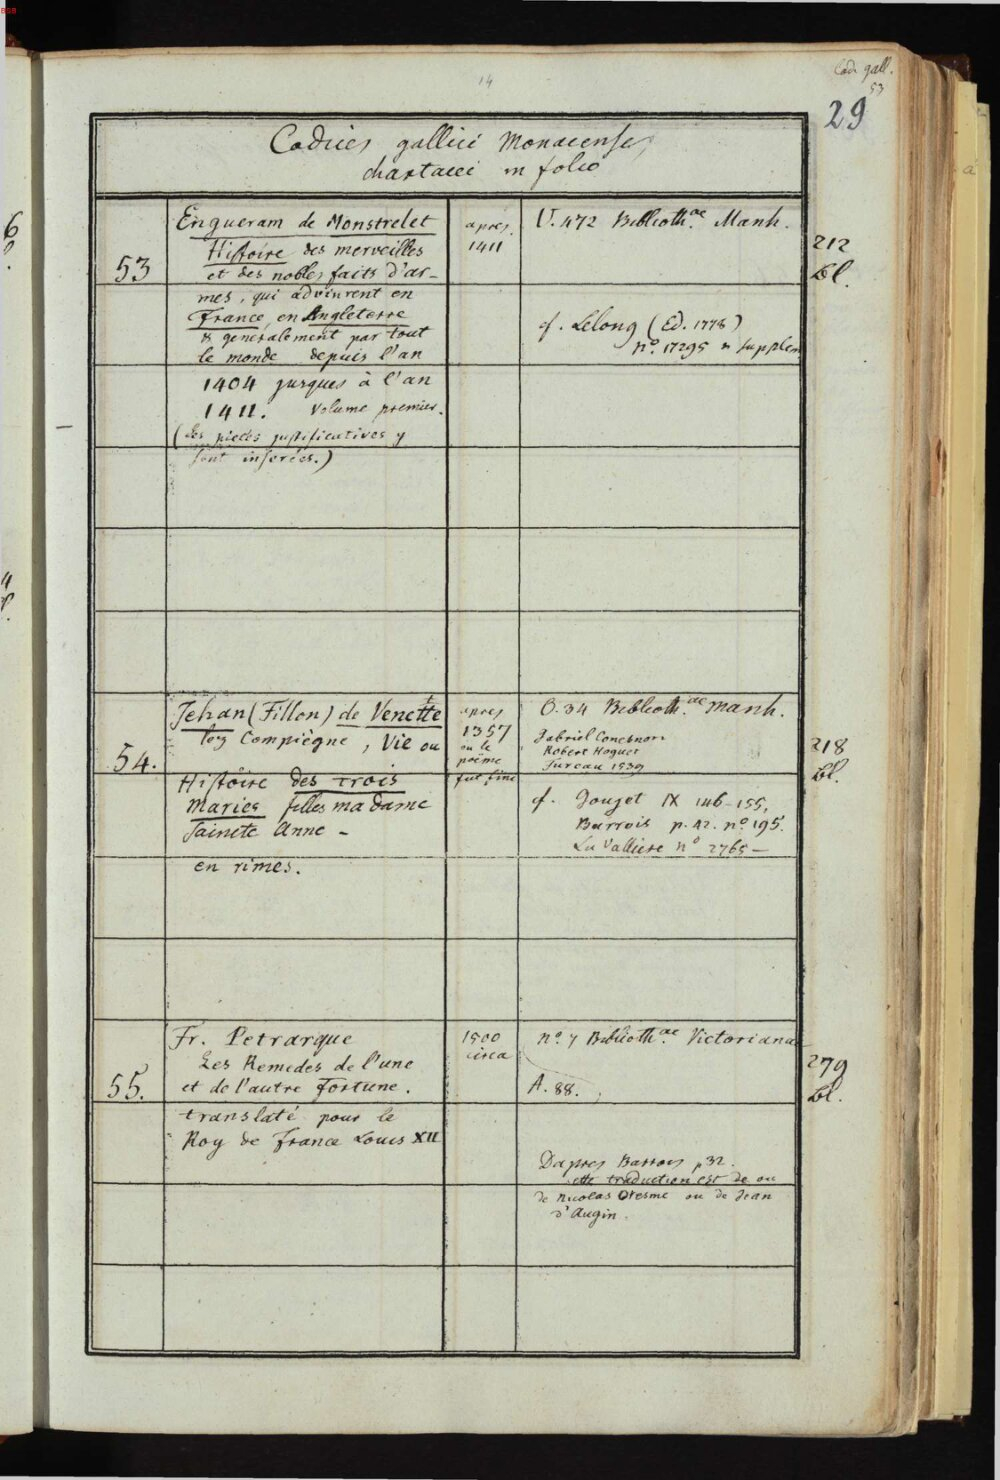 BSB
14
Cod. gall.
53
29
Codices gallici Monacenses,
chartacei in folio
53
Engueram de Monstrelet
Histoire des merveilles
et des nobles faits d'ar-
mes, qui advinrent en
France, en Angleterre
& generalement par tout
le monde depuis l'an
1404 jusques à l'an
1411. Volume premier.
(Les pieces justificatives y
sont inserées.)
apres
1411
V. 472 Biblioth.ae Manh.
cf. Lelong (Ed. 1778)
no. 17295 & supplem
212
Bl.
54.
Jehan (Fillon) de Venette
lez Compiègne, Vie ou
Histoire des trois
Maries filles madame
Saincte Anne -
en rimes.
apres
1357
ou le
poëme
fut fini
O. 34 Biblioth.ae Manh.
Gabriel
Robert Hoguet
Jureau 1539
cf. Goujet IX 146-155,
Barrois p. 42. no 195.
La Valliere no 2765 -
218
Bl.
55.
Fr. Petrarque
Les Remedes de l'une
et de l'autre Fortune.
translaté pour le
Roy de France Louis XII
1500
circa
no. 7 Biblioth.ae Victorianae
A. 88.
Dapres Barrois p 32.
cette traduction est de ou
de Nicolas Oresme ou de Jean
d'Augin.
279
Bl.
6
4